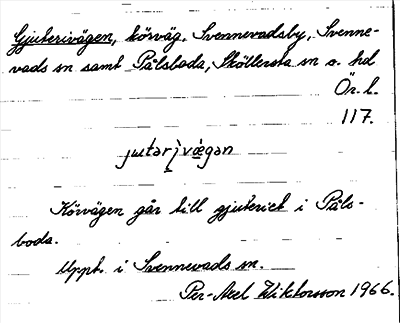 Gjuterivägen, körväg. Svennevadsby, Svenne-
vads sn samt Pålsboda, Sköllersta sn o. hd
Ör. l.
117.
jutərivǽgən
Körvägen går till gjuteriet i Påls-
boda.
Uppt. i Svennevads sn.
Per-Axel Wiktorsson 1966.